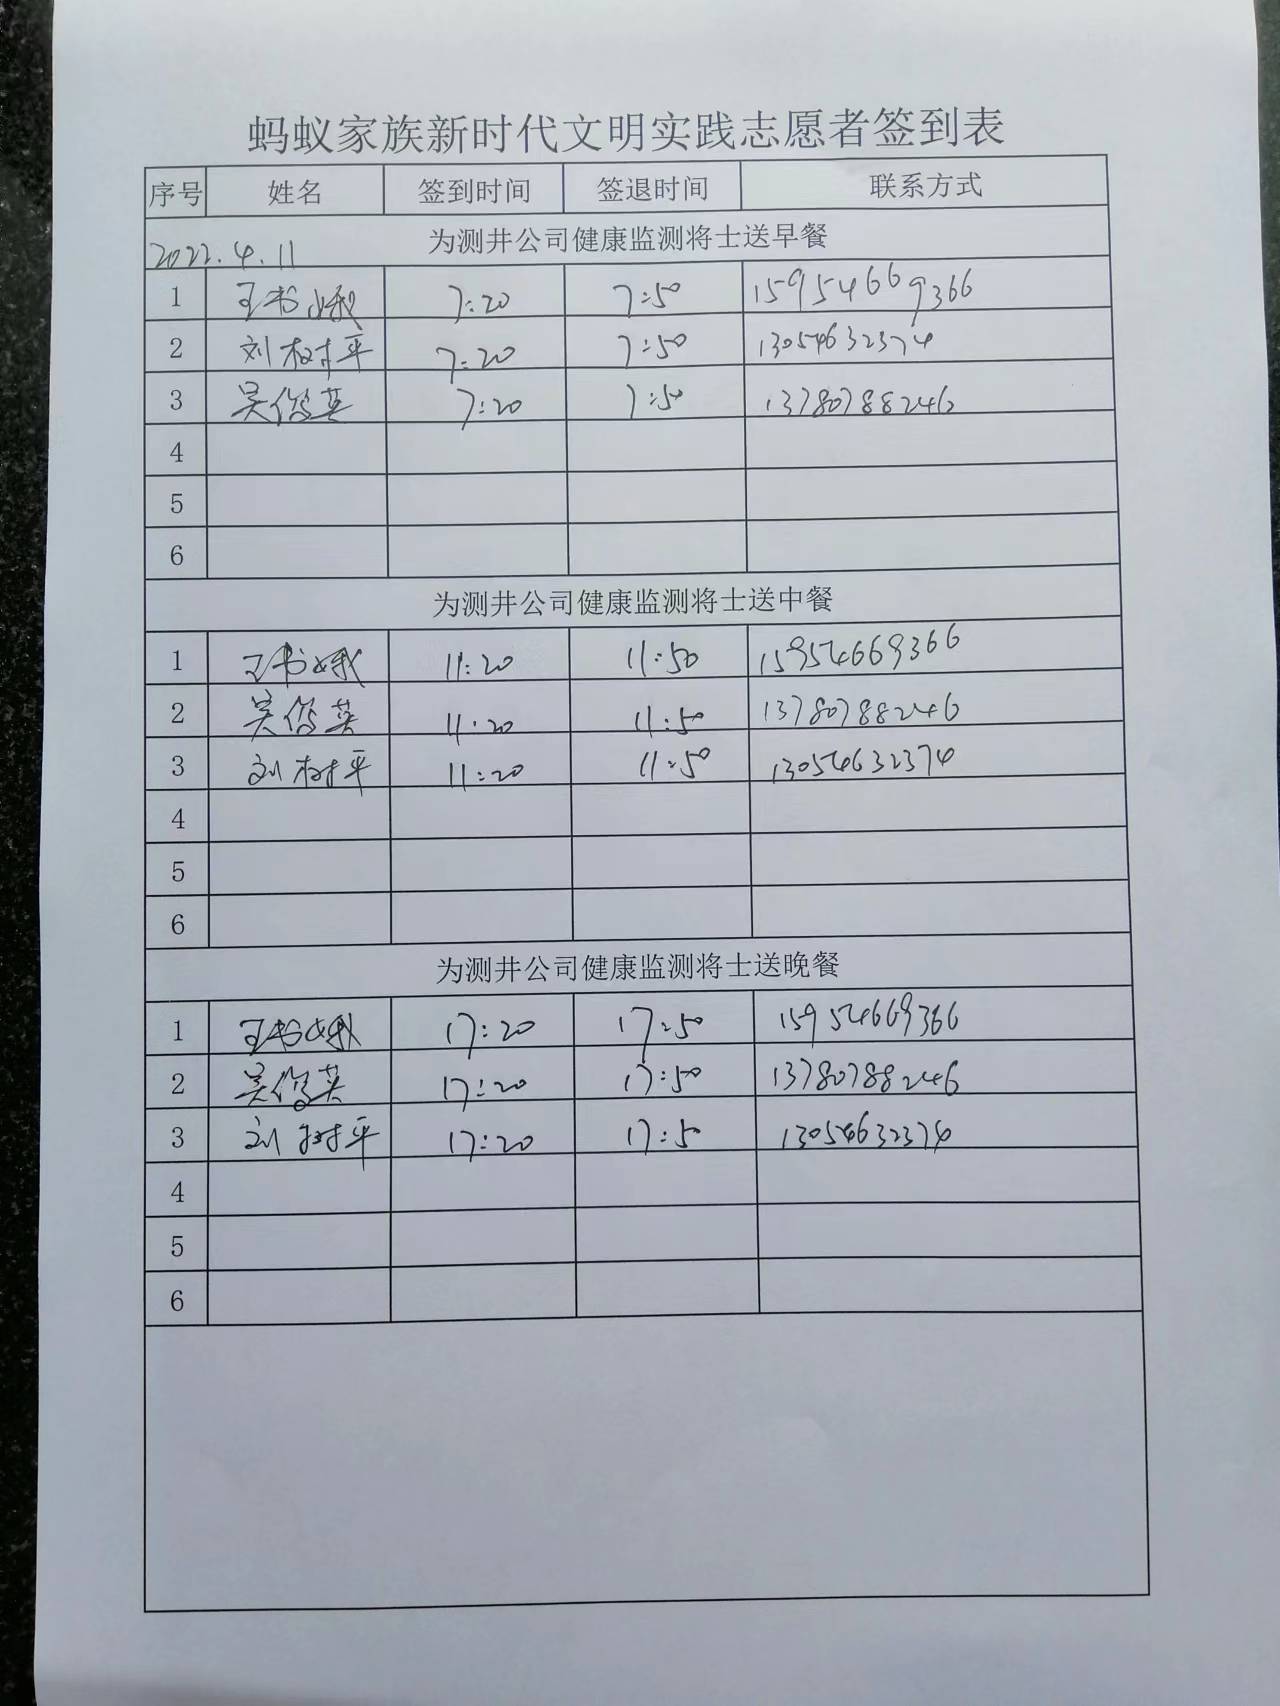 蚂蚁家族新时代文明实践志愿者签到表
序号 姓名 签到时间 签退时间 联系方式
2022.4.11 为测井公司健康监测将士送早餐
1 王书娥 7:20 7:50 15954669366
2 刘树平 7:20 7:50 13054632374
3 吴俊英 7:20 7:50 13780788246
4
5
6
为测井公司健康监测将士送中餐
1 王书娥 11:20 11:50 15954669366
2 吴俊英 11:20 11:50 13780788246
3 刘树平 11:20 11:50 13054632374
4
5
6
为测井公司健康监测将士送晚餐
1 王书娥 17:20 17:50 15954669366
2 吴俊英 17:20 17:50 13780788246
3 刘树平 17:20 17:50 13054632374
4
5
6